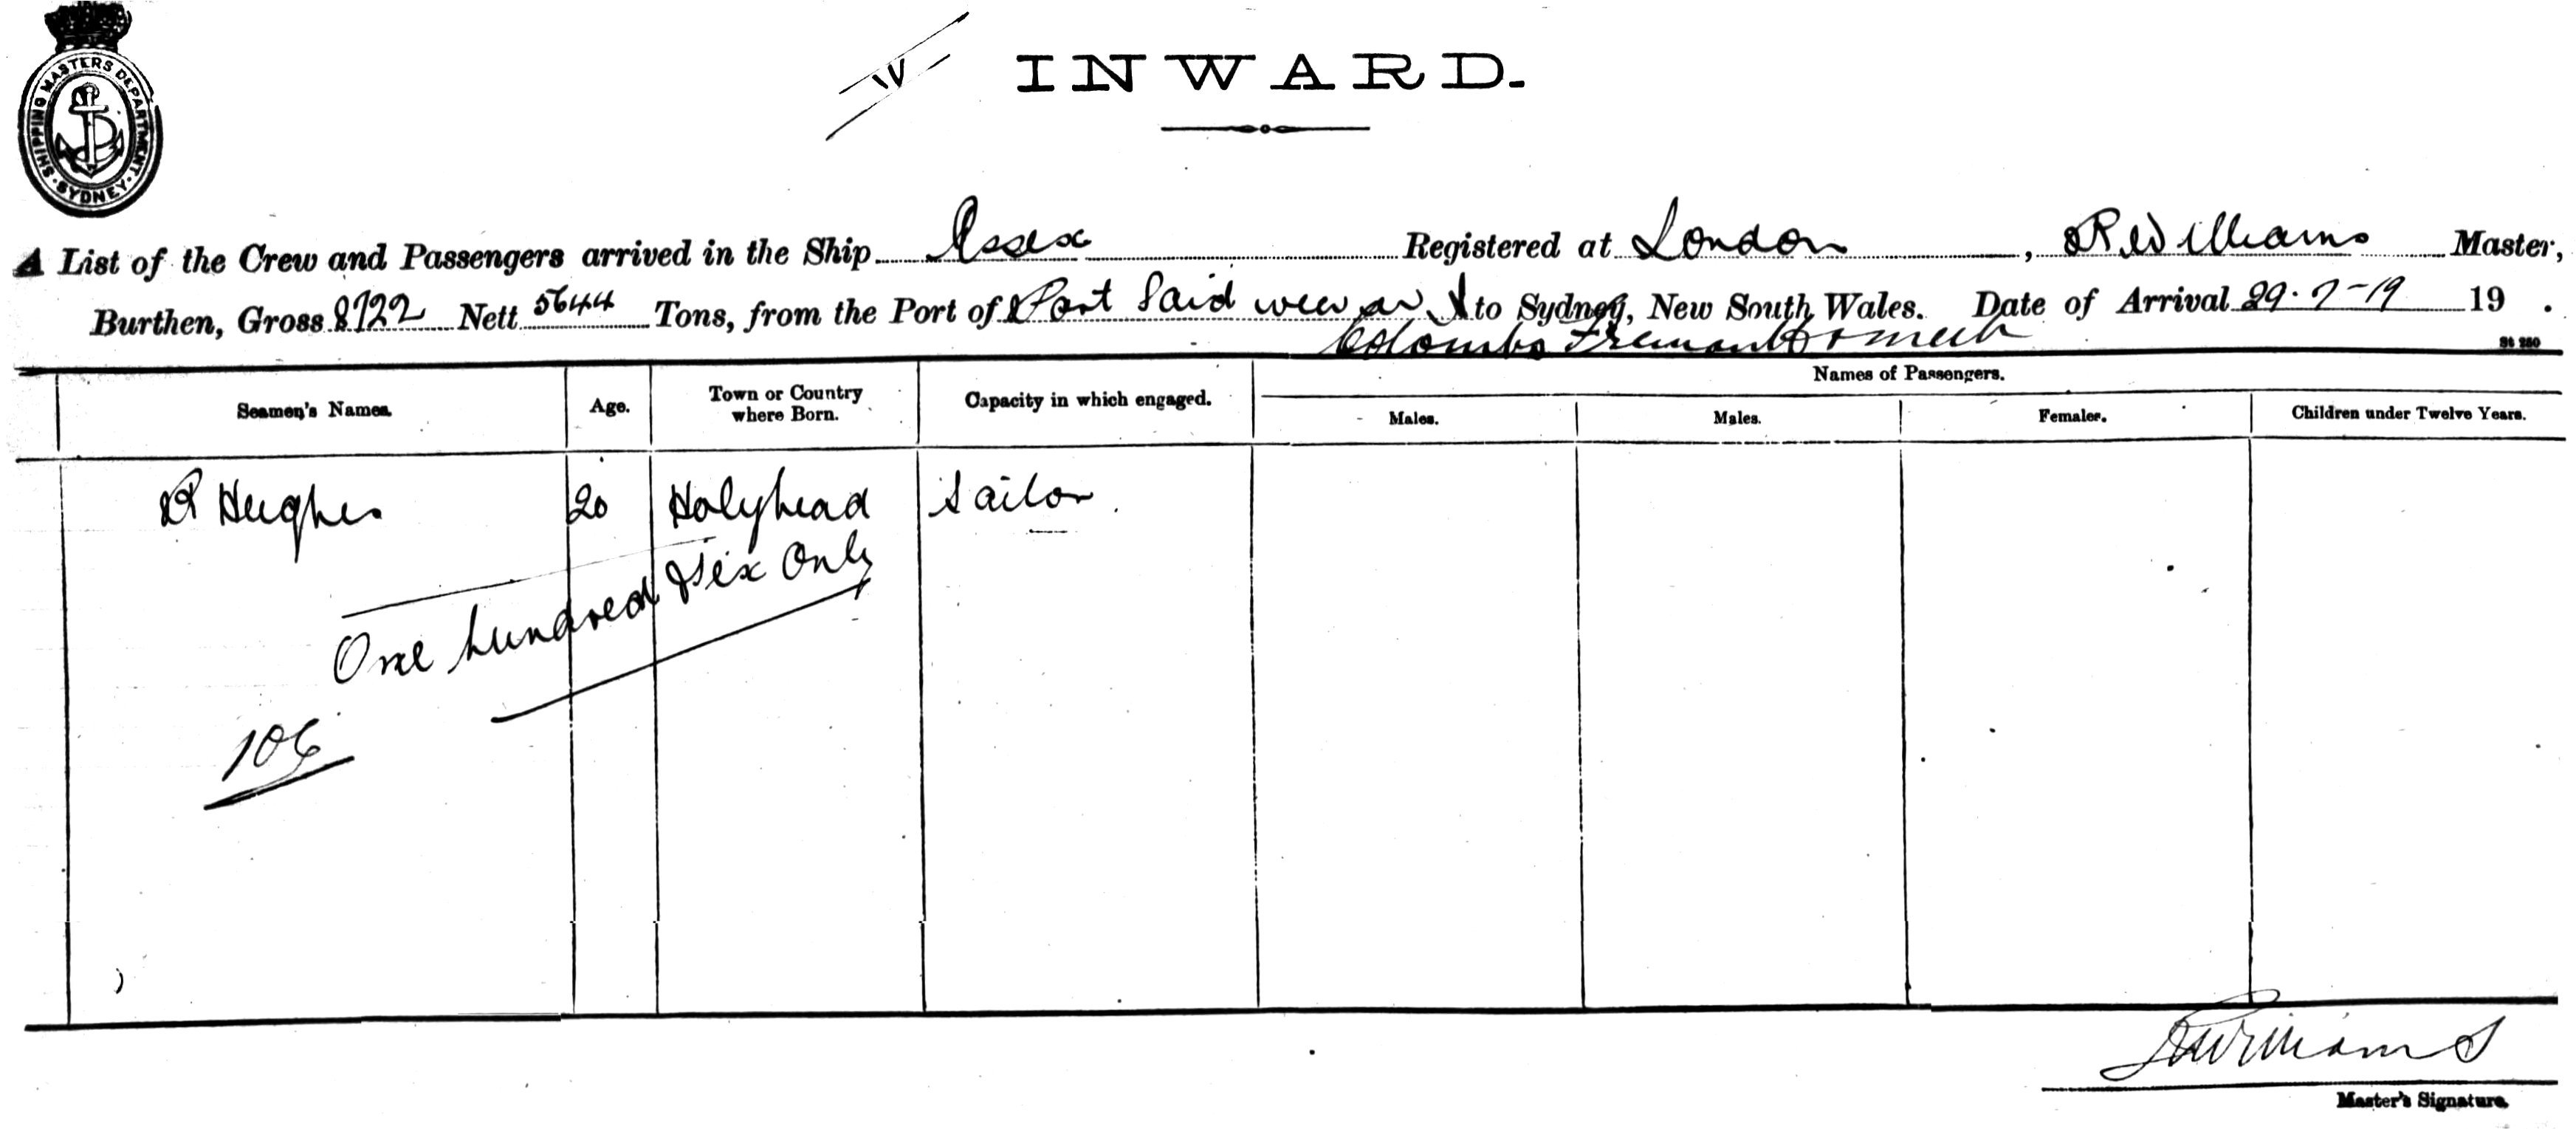 SHIPPING MASTERS DEPARTMENT · SYDNEY ·
INWARD.
A List of the Crew and Passengers arrived in the Ship Essex Registered at London, R Williams Master,
Burthen, Gross 8722 Nett 5644 Tons, from the Port of Port Said to Sydney, New South Wales. Date of Arrival 29.7-19 19 .
Colombo
St 250
Names of Passengers.
Seamen's Names. Age. Town or Country where Born. Capacity in which engaged. Males. Males. Females. Children under Twelve Years.
R Hughes 20 Holyhead Sailor.
One hundred & six Only
106
RWilliams
Master's Signature.